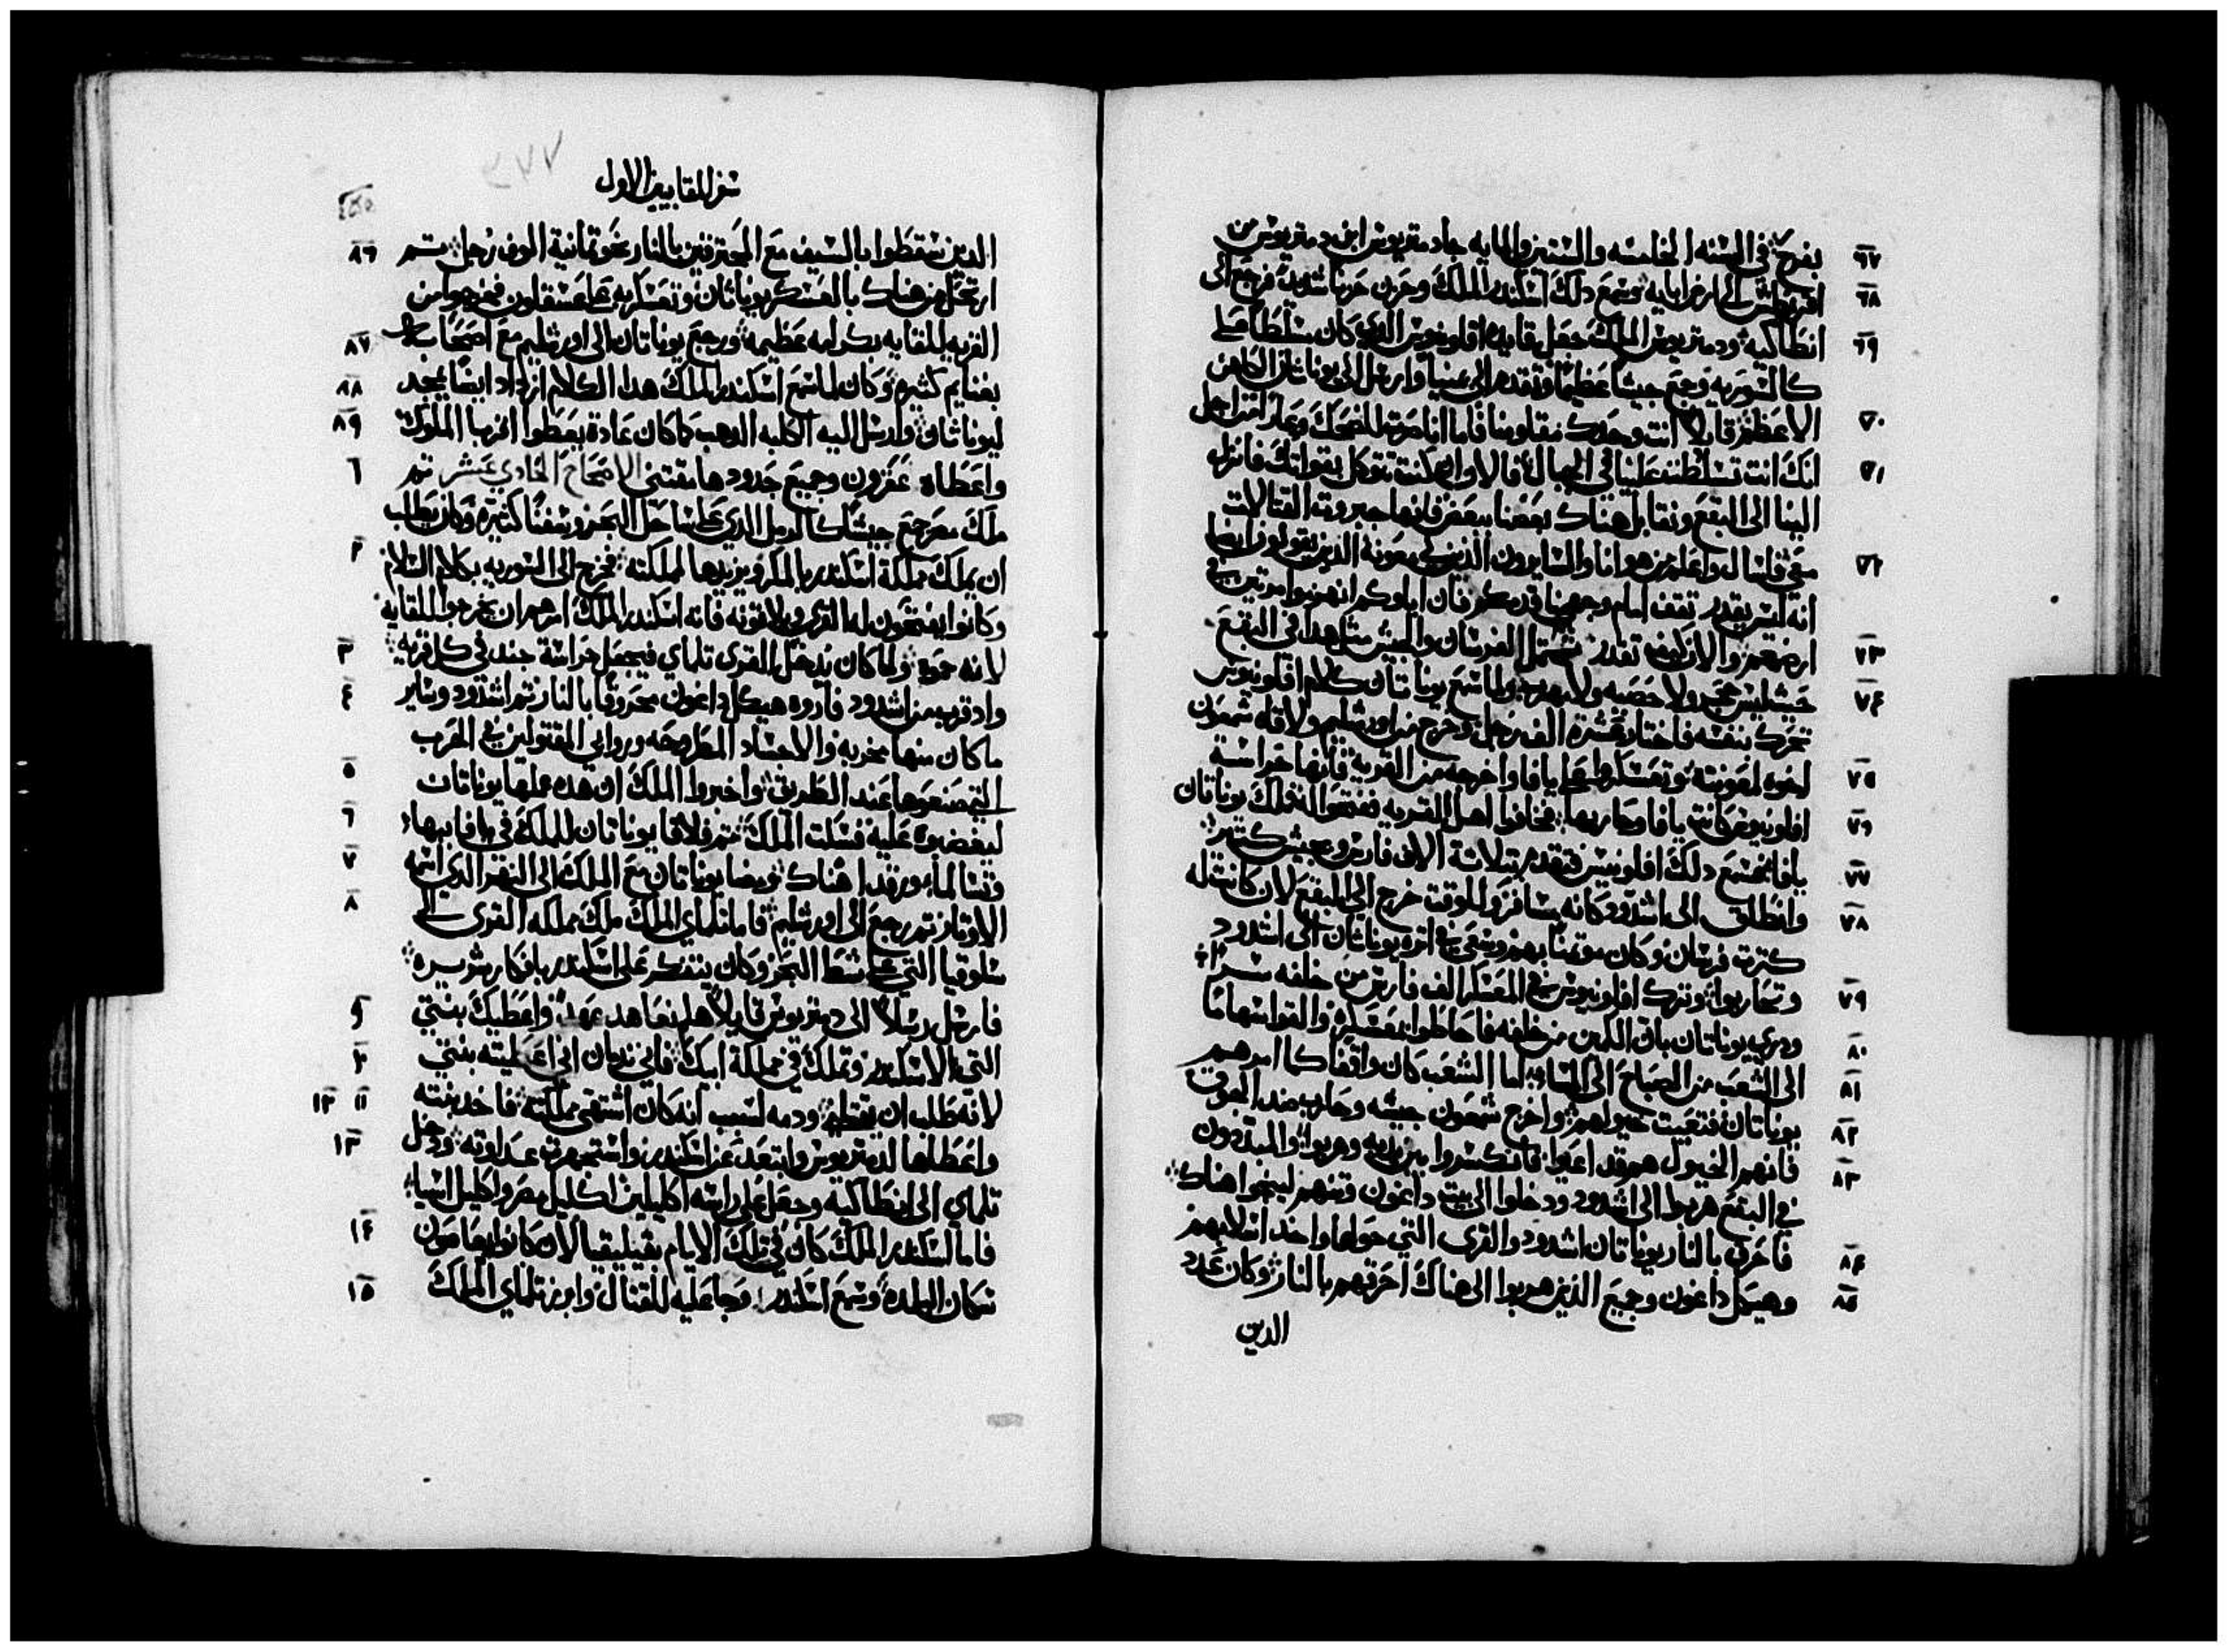 ٦٧ بفرح في السنه الخامسه والستين والمايه جا دمتريوس ابن دمتريوس من
٦٨ اقريطش الى ارض ابايه وسمع ذلك اسكندر الملك وحزن حزنا شديدا فرجع الى
٦٩ انطاكيه ودمتريوس الملك جعل قايدا افلونيوس الذي كان مسلطا على
كالسوريه وجمع جيشا عظيما وتقدم الى يمنيا وارسل الى يوناثان الكاهن
٧٠ الاعظم قايلا انت وحدك تقاومنا فاما انا صرت للضحك وعار من اجل
٧١ انك انت تسلطنت علينا في الجبال فالاوان ان كنت تتوكل بقواتك فانزل
الينا الى البقع ونقابل هناك بعضنا ببعض فانها جبروت القتالات
٧٢ معي فاسال واعلم من هو انا والسايرون الذين في معونة الذين يقولون ايضا
انه ليس يقدر تقف امام وجهنا قدمكم فان اباوكم انهزموا مرتين في
٧٣ ارضهم والان كيف تقدر تحتمل الفرسان والجيش مثل هذا في البقع
٧٤ حيث ليس حجر ولا حصبه ولا مهرب ولما سمع يوناتان كلام افلونيوس
تحرك بنفسه فاختار عشرة الف رجل وخرج من اورشليم ولاقاه شمعون
٧٥ اخوه لمعونته وتعسكروا على يافا واخرجه من القريه فانها حراسة
٧٦ افلونيوس كانت يافا وحاربها فخافوا اهل القريه ففتحوا فتملك يوناتان
٧٧ يافا فسمع ذلك افلونيوس فتقدم بتلاتة الاف فارس وجيش كتير
٧٨ وانطلق الى اشدود كانه مسافر وللوقت خرج الى البقع لان كانت له
كترت فرسان وكان موتمنا بهم وسعى في اتره يوناثان الى اشدود
٧٩ وتحاربوا وترك افلونيوس في المعسكر الف فارس من خلفه سرا
٨٠ ودري يوناتان بان الكمين من خلفه فاحاطوا بعسكره والقوا سهاما
٨١ الى الشعب من الصباح الى المسا اما الشعب كان واقفا كما امرهم
٨٢ يوناتان فتعبت خيولهم واخرج شمعون جيشه وحارب ضد الجوق
٨٣ فانهم الخيول هم قد اعيوا فانكسروا من يديه وهربوا والمبتددون
في البقع هربوا الى اشدود ودخلوا الى بيت داغون وتنهم لينجوا هناك
٨٤ فاحرق بالنار يوناتان اشدود والقرى التي حولها واخد اسلابهم
٨٥ وهيكل داغون وجميع الذين هربوا الى هناك احرقهم بالنار وكان عدد
الدين
سفر المقابيين الاول
الدين سقطوا بالسيف مع المحترقين بالنار نحو تمانية الوف رجل ثم ٨٦
ارتحل من هناك بالعسكر يوناتان وتعسكر به على عسقلون فخرجوا من
القريه للقايه بكرامه عظيمه ورجع يوناتان الى اورشليم مع اصحابه ٨٧
بغنايم كثيره وكان لما سمع اسكندر الملك هدا الكلام ازداد ايضا يمجد ٨٨
ليوناثان وارسل اليه الكلبه الدهب كما كان عادة يعطوا اقربا الملوك ٨٩
واعطاه عقرون وجميع حدودها مقتنى الاصحاح الحادي عشر تم ١
ملك مصر جمع جيشا كالرمل الذي على ساحل البحر وسفنا كثيره وكان يطلب
ان يملك مملكة اسكندر بالمكر ويزيدها لمملكته فخرج الى السوريه بكلام السلام ٢
وكانوا يفتحون له القرى ويلاقونه فانه اسكندر الملك امرهم ان يخرجوا للقايه
لانه حموه ولما كان يدخل القرى تلماي فيجعل حراسة جند في كل قريه ٣
واد قرب من اشدود فاروه هيكل داغون محروقا بالنار ثم اشدود وساير ٤
ما كان منها مخربه والاجساد المطروحه وروابي المقتولين في الحرب
التي صنعوها عند الطريق واخبروا الملك ان هده عملها يوناتان ٥
ليغضبوه عليه فسكت الملك تم فلاقا يوناتان للملك في يافا ببهاء ٦
وتسالما ورقدا هناك ومضا يوناتان مع الملك الى النهر الذي اسمه ٧
الاوتار ثم رجع الى اورشليم فاما تلماي الملك ملك مملكه القرى الى ٨
سلوقيا التي على شط البحر وكان يتفكر على اسكندر بافكار شريره
فارسل رسلا الى دمتريوس قايلا هلم نعاهد عهدا واعطيك بنتي ٩
التي لاسكندر وتملك في مملكة ابيك فاني ندمان اني اعطيته بنتي ١٠
لانه طلب ان يقتلني ودمه لسبب انه كان اشتهى مملكته فاخد بنته ١١ ١٢
واعطاها لدمتريوس وابتعد عن اسكندر واستجهرت عداوته ودخل ١٣
تلماي الى انطاكيه وجعل على راسه اكليلين اكليل مصر واكليل اسيا
فاما اسكندر الملك كان في تلك الايام بقيليقيا لان كانوا يعصون ١٤
سكان البلده وسمع اسكندر وجا عليه للقتال وابرز تلماي الملك ١٥